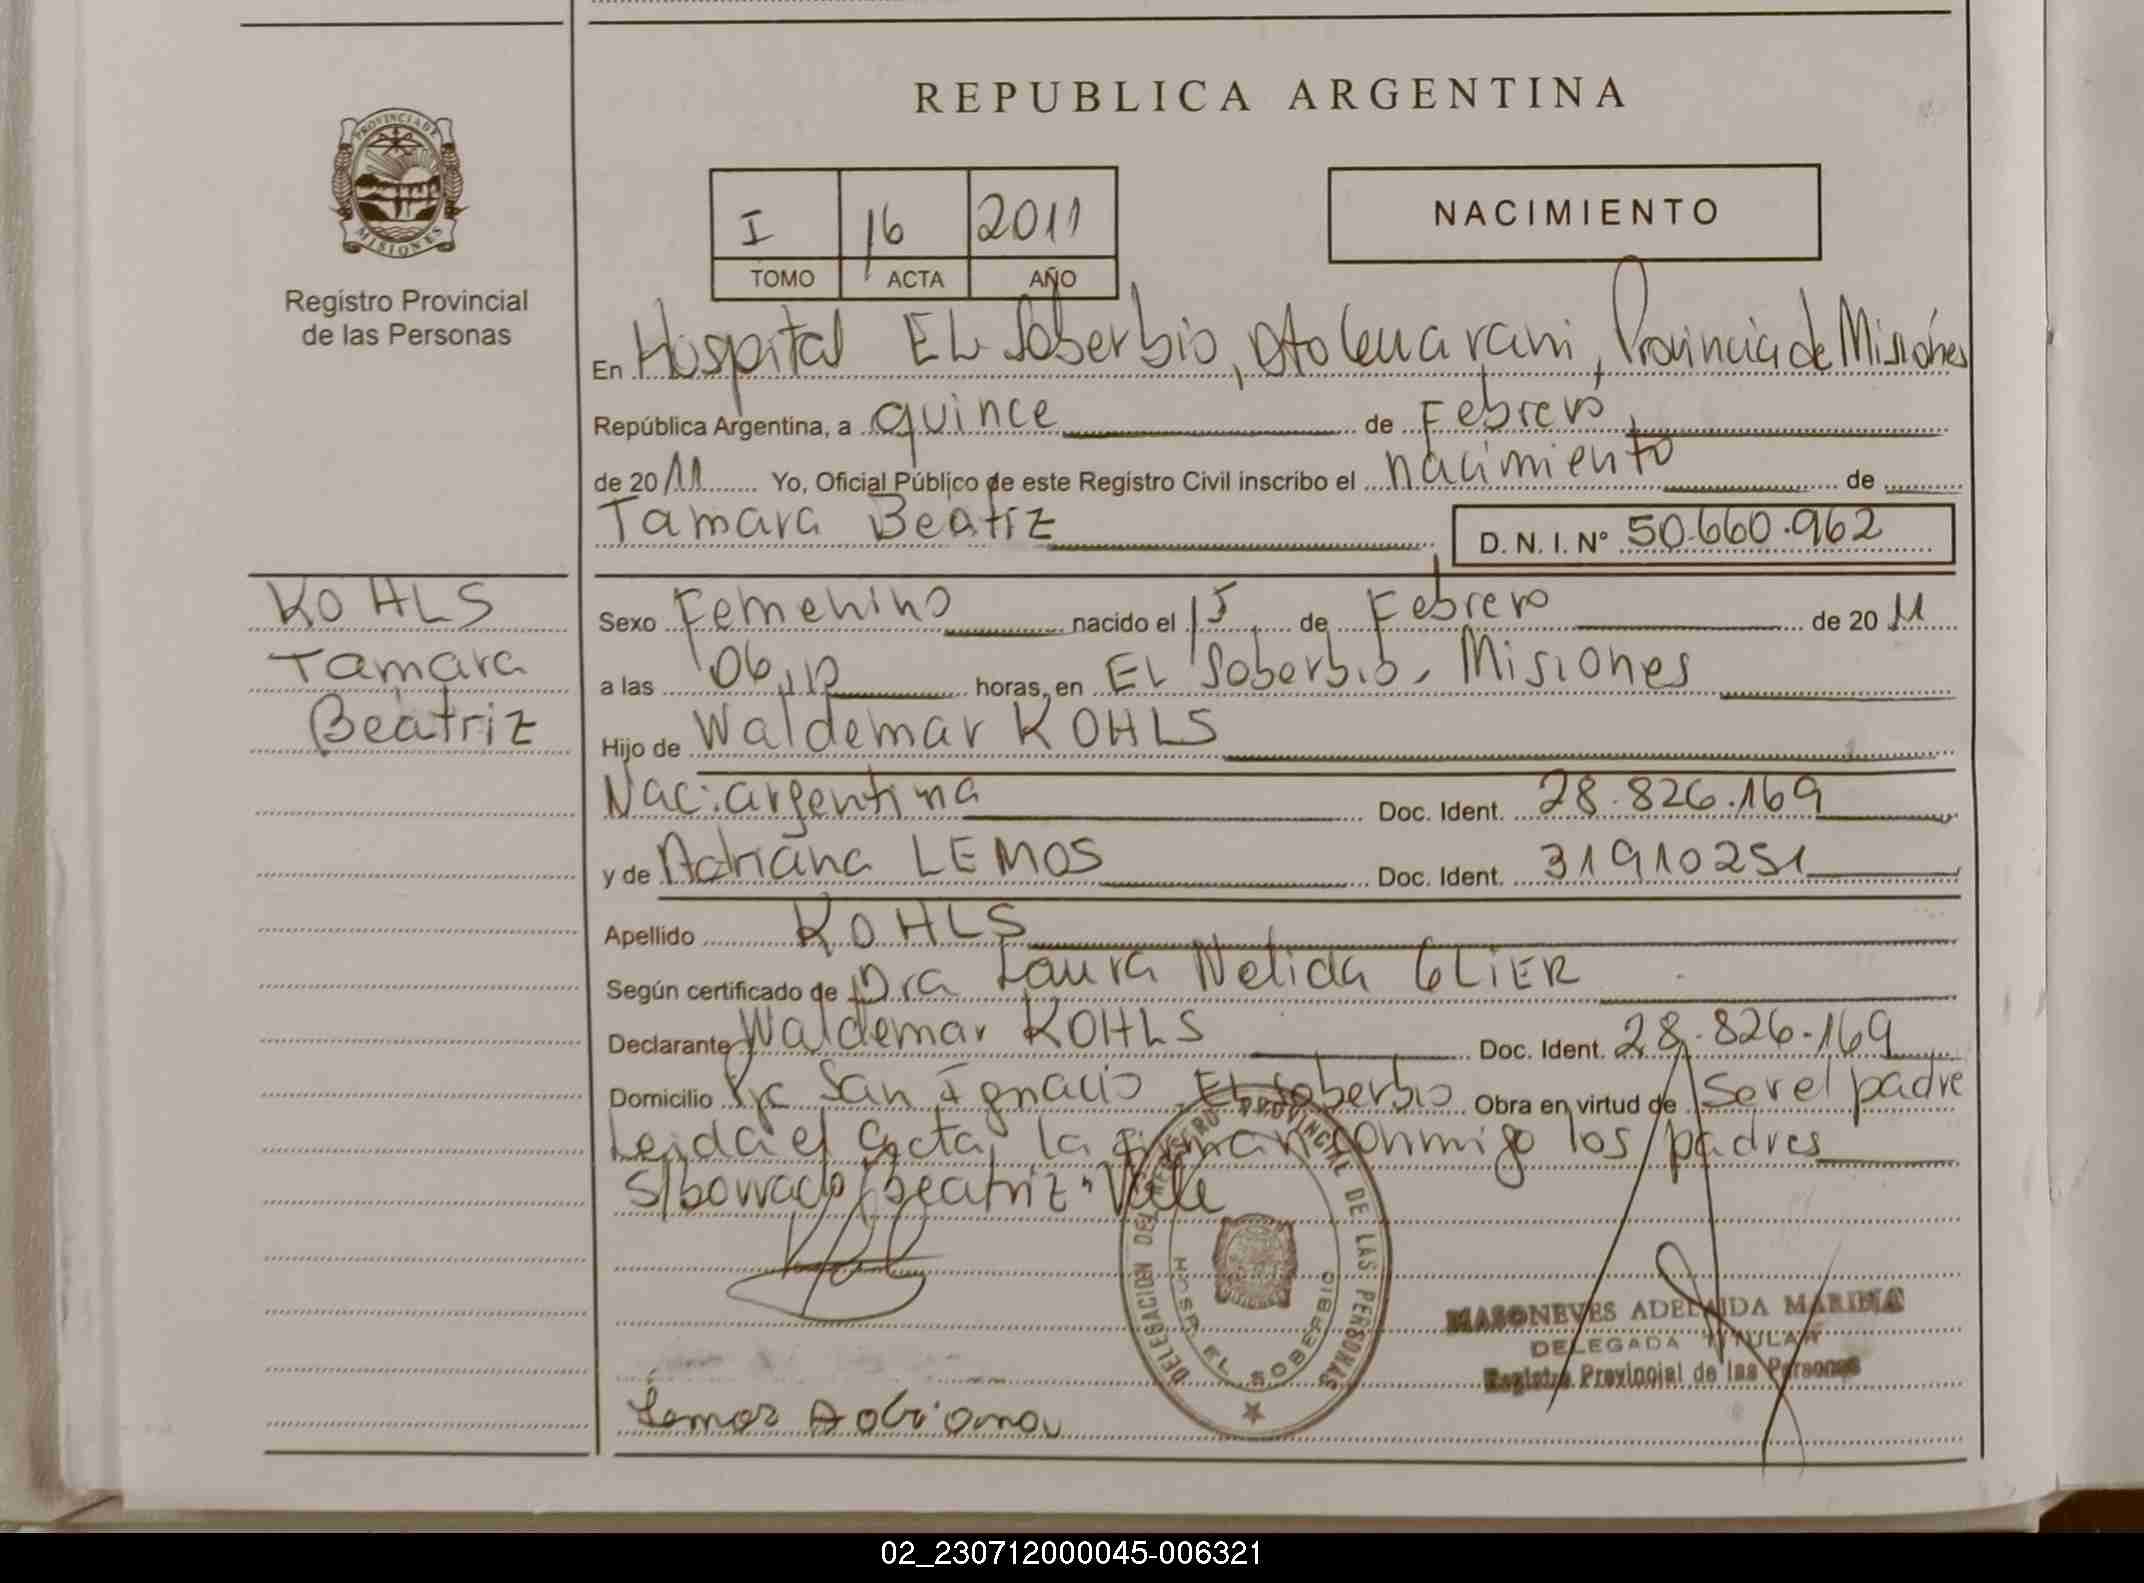 REPUBLICA ARGENTINA
PROVINCIA DE
MISIONES
Registro Provincial
de las Personas
I 16 2011
TOMO ACTA AÑO
NACIMIENTO
En Hospital EL Soberbio, Dto Guarani, Provincia de Misiones
República Argentina, a quince de Febrero
de 2011 Yo, Oficial Público de este Registro Civil inscribo el nacimiento de
Tamara Beatriz D. N. I. Nº 50.660.962
KOHLS
Tamara
Beatriz
Sexo Femenino nacido el 15 de Febrero de 2011
a las 06,10 horas, en EL Soberbio, Misiones
Hijo de Waldemar KOHLS
Nac: argentina Doc. Ident. 28.826.169
y de Adriana LEMOS Doc. Ident. 31910251
Apellido KOHLS
Según certificado de Dra Laura Nelida GLIER
Declarante Waldemar KOHLS Doc. Ident. 28.826.169
Domicilio Pje San Ignacio El Soberbio Obra en virtud de Ser el padre
Leida el acta, la firman conmigo los padres
S/borrado/beatriz" Vale
DELEGACION DEL REGISTRO PROVINCIAL DE LAS PERSONAS
HOSP. EL SOBERBIO
MASONEVES ADELAIDA MARINA
DELEGADA TITULAR
Registro Provincial de las Personas
Lemos Adriana
02_230712000045-006321